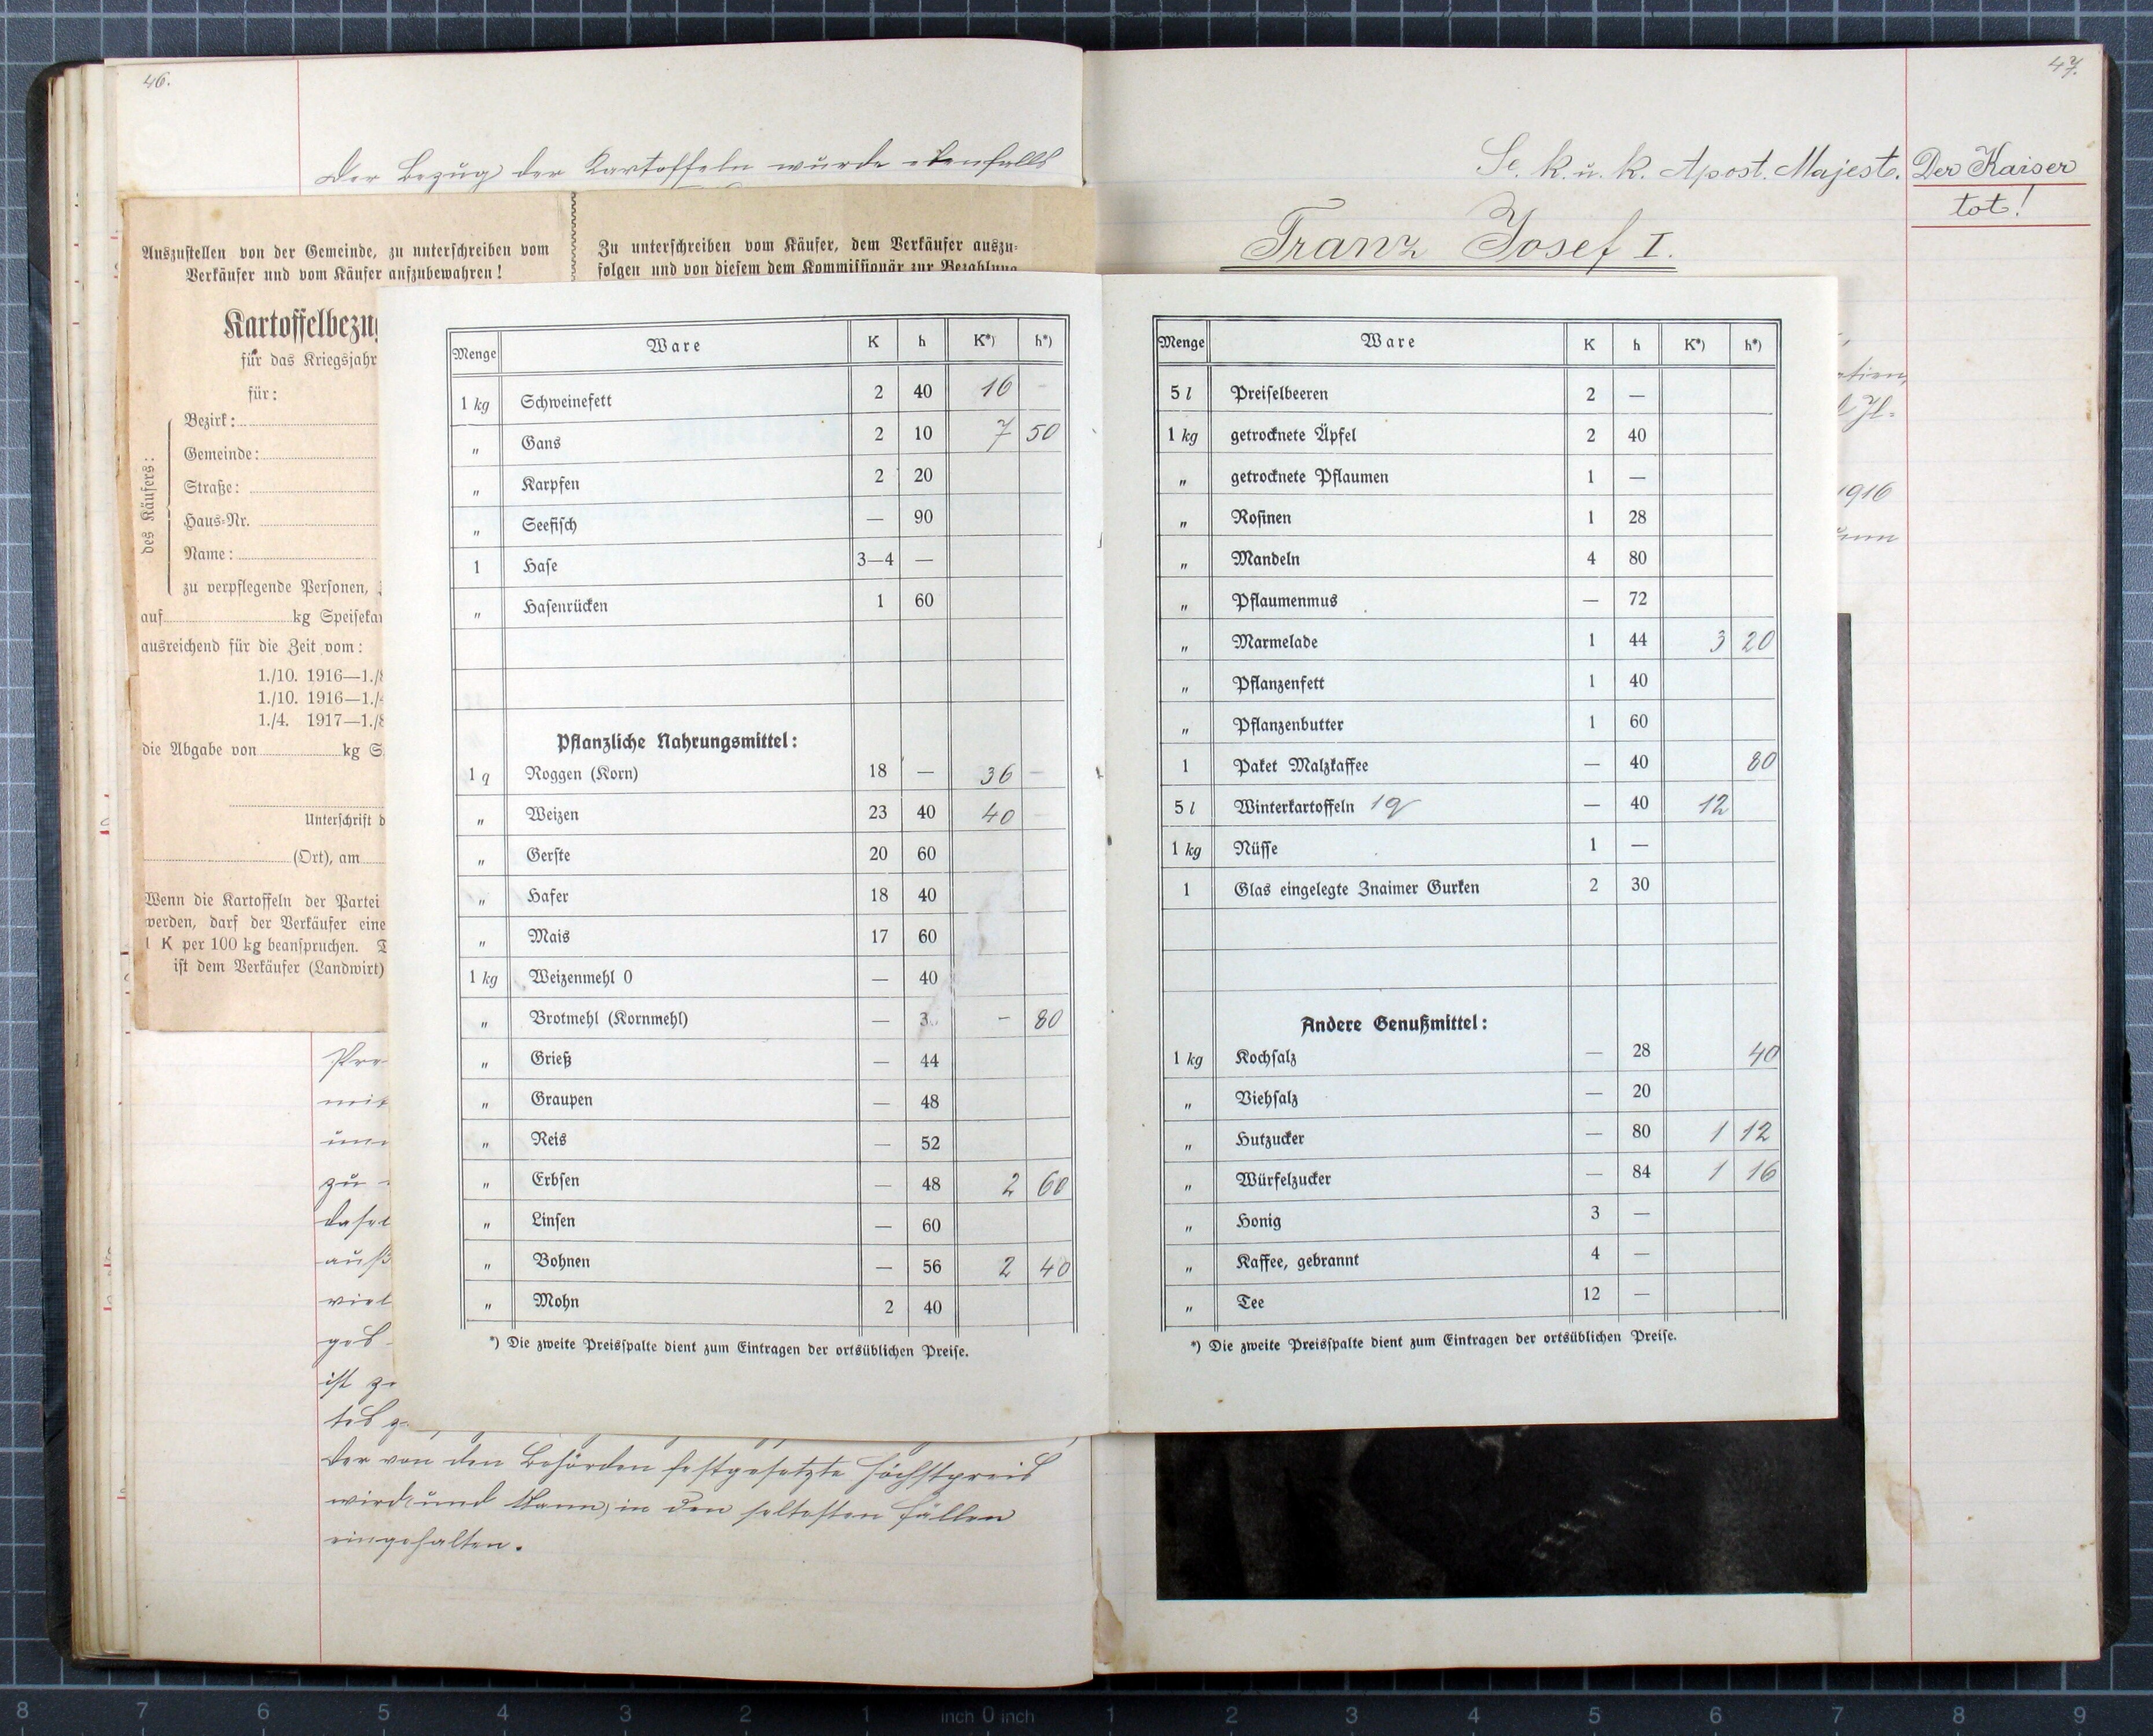 46.
Der Bezug der Kartoffeln wurde ebenfalls
Auszustellen von der Gemeinde, zu unterschreiben vom
Verkäufer und vom Käufer aufzubewahren!
Kartoffelbezu
für das Kriegsjahr
für:
des Käufers:
Bezirk:
Gemeinde:
Straße:
Haus-Nr.
Name:
zu verpflegende Personen,
auf kg Speiseka
ausreichend für die Zeit vom:
1./10. 1916—1./
1./10. 1916—1./
1./4. 1917—1./
die Abgabe von kg S
Unterschrift d
(Ort), am
Wenn die Kartoffeln der Partei
werden, darf der Verkäufer eine
1 K per 100 kg beanspruchen.
ist dem Verkäufer (Landwirt)
Zu unterschreiben vom Käufer, dem Verkäufer auszu-
folgen und von diesem dem Kommissionär zur Bezahlung
Menge Ware K h K*) h*)
1 kg Schweinefett 2 40 16 —
„ Gans 2 10 7 50
„ Karpfen 2 20
„ Seefisch — 90
1 Hase 3—4 —
„ Hasenrücken 1 60
Pflanzliche Nahrungsmittel:
1 q Roggen (Korn) 18 — 36 —
„ Weizen 23 40 40 —
„ Gerste 20 60
„ Hafer 18 40
„ Mais 17 60
1 kg Weizenmehl 0 — 40
„ Brotmehl (Kornmehl) — 3 — 80
„ Grieß — 44
„ Graupen — 48
„ Reis — 52
„ Erbsen — 48 2 60
„ Linsen — 60
„ Bohnen — 56 2 40
„ Mohn 2 40
*) Die zweite Preisspalte dient zum Eintragen der ortsüblichen Preise.
mit
zu
auß
viel
ist
der von den Behörden festgesetzte Höchstpreis
wird und kann in den seltesten Fällen
eingehalten.
47.
Se. k. u. k. Apost. Majest.
Der Kaiser
tot!
Franz Josef I.
1916
Menge Ware K h K*) h*)
5 l Preiselbeeren 2 —
1 kg getrocknete Äpfel 2 40
„ getrocknete Pflaumen 1 —
„ Rosinen 1 28
„ Mandeln 4 80
„ Pflaumenmus — 72
„ Marmelade 1 44 3 20
„ Pflanzenfett 1 40
„ Pflanzenbutter 1 60
1 Paket Malzkaffee — 40 80
5 l Winterkartoffeln 1q — 40 12
1 kg Nüsse 1 —
1 Glas eingelegte Znaimer Gurken 2 30
Andere Genußmittel:
1 kg Kochsalz — 28 40
„ Viehsalz — 20
„ Hutzucker — 80 1 12
„ Würfelzucker — 84 1 16
„ Honig 3 —
„ Kaffee, gebrannt 4 —
„ Tee 12 —
*) Die zweite Preisspalte dient zum Eintragen der ortsüblichen Preise.
8 7 6 5 4 3 2 1 inch 0 inch 1 2 3 4 5 6 7 8 9